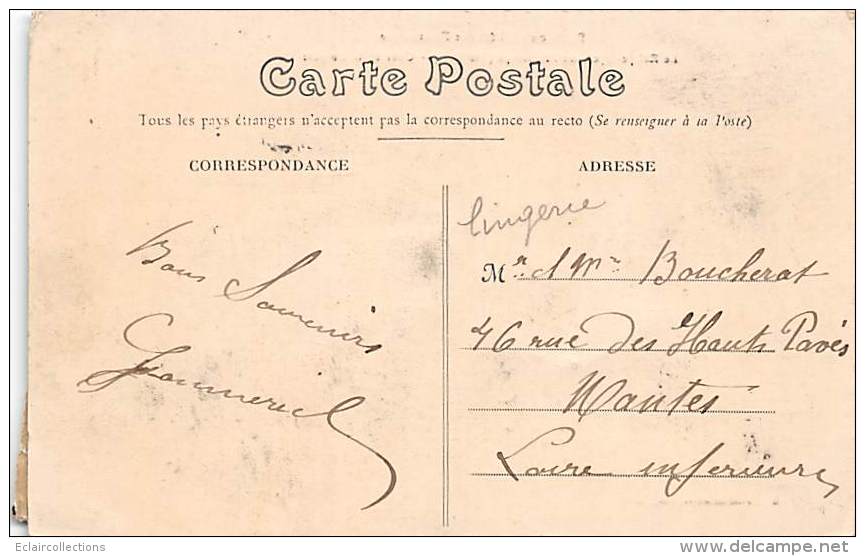 Carte Postale
Tous les pays étrangers n'acceptent pas la correspondance au recto (Se renseigner à la Poste)
CORRESPONDANCE
ADRESSE
Bons Souvenirs
lingerie
Mr et Mme Boucherat
46 rue des Hauts Pavés
Nantes
Loire inferieure
Eclaircollections
www.delcampe.net